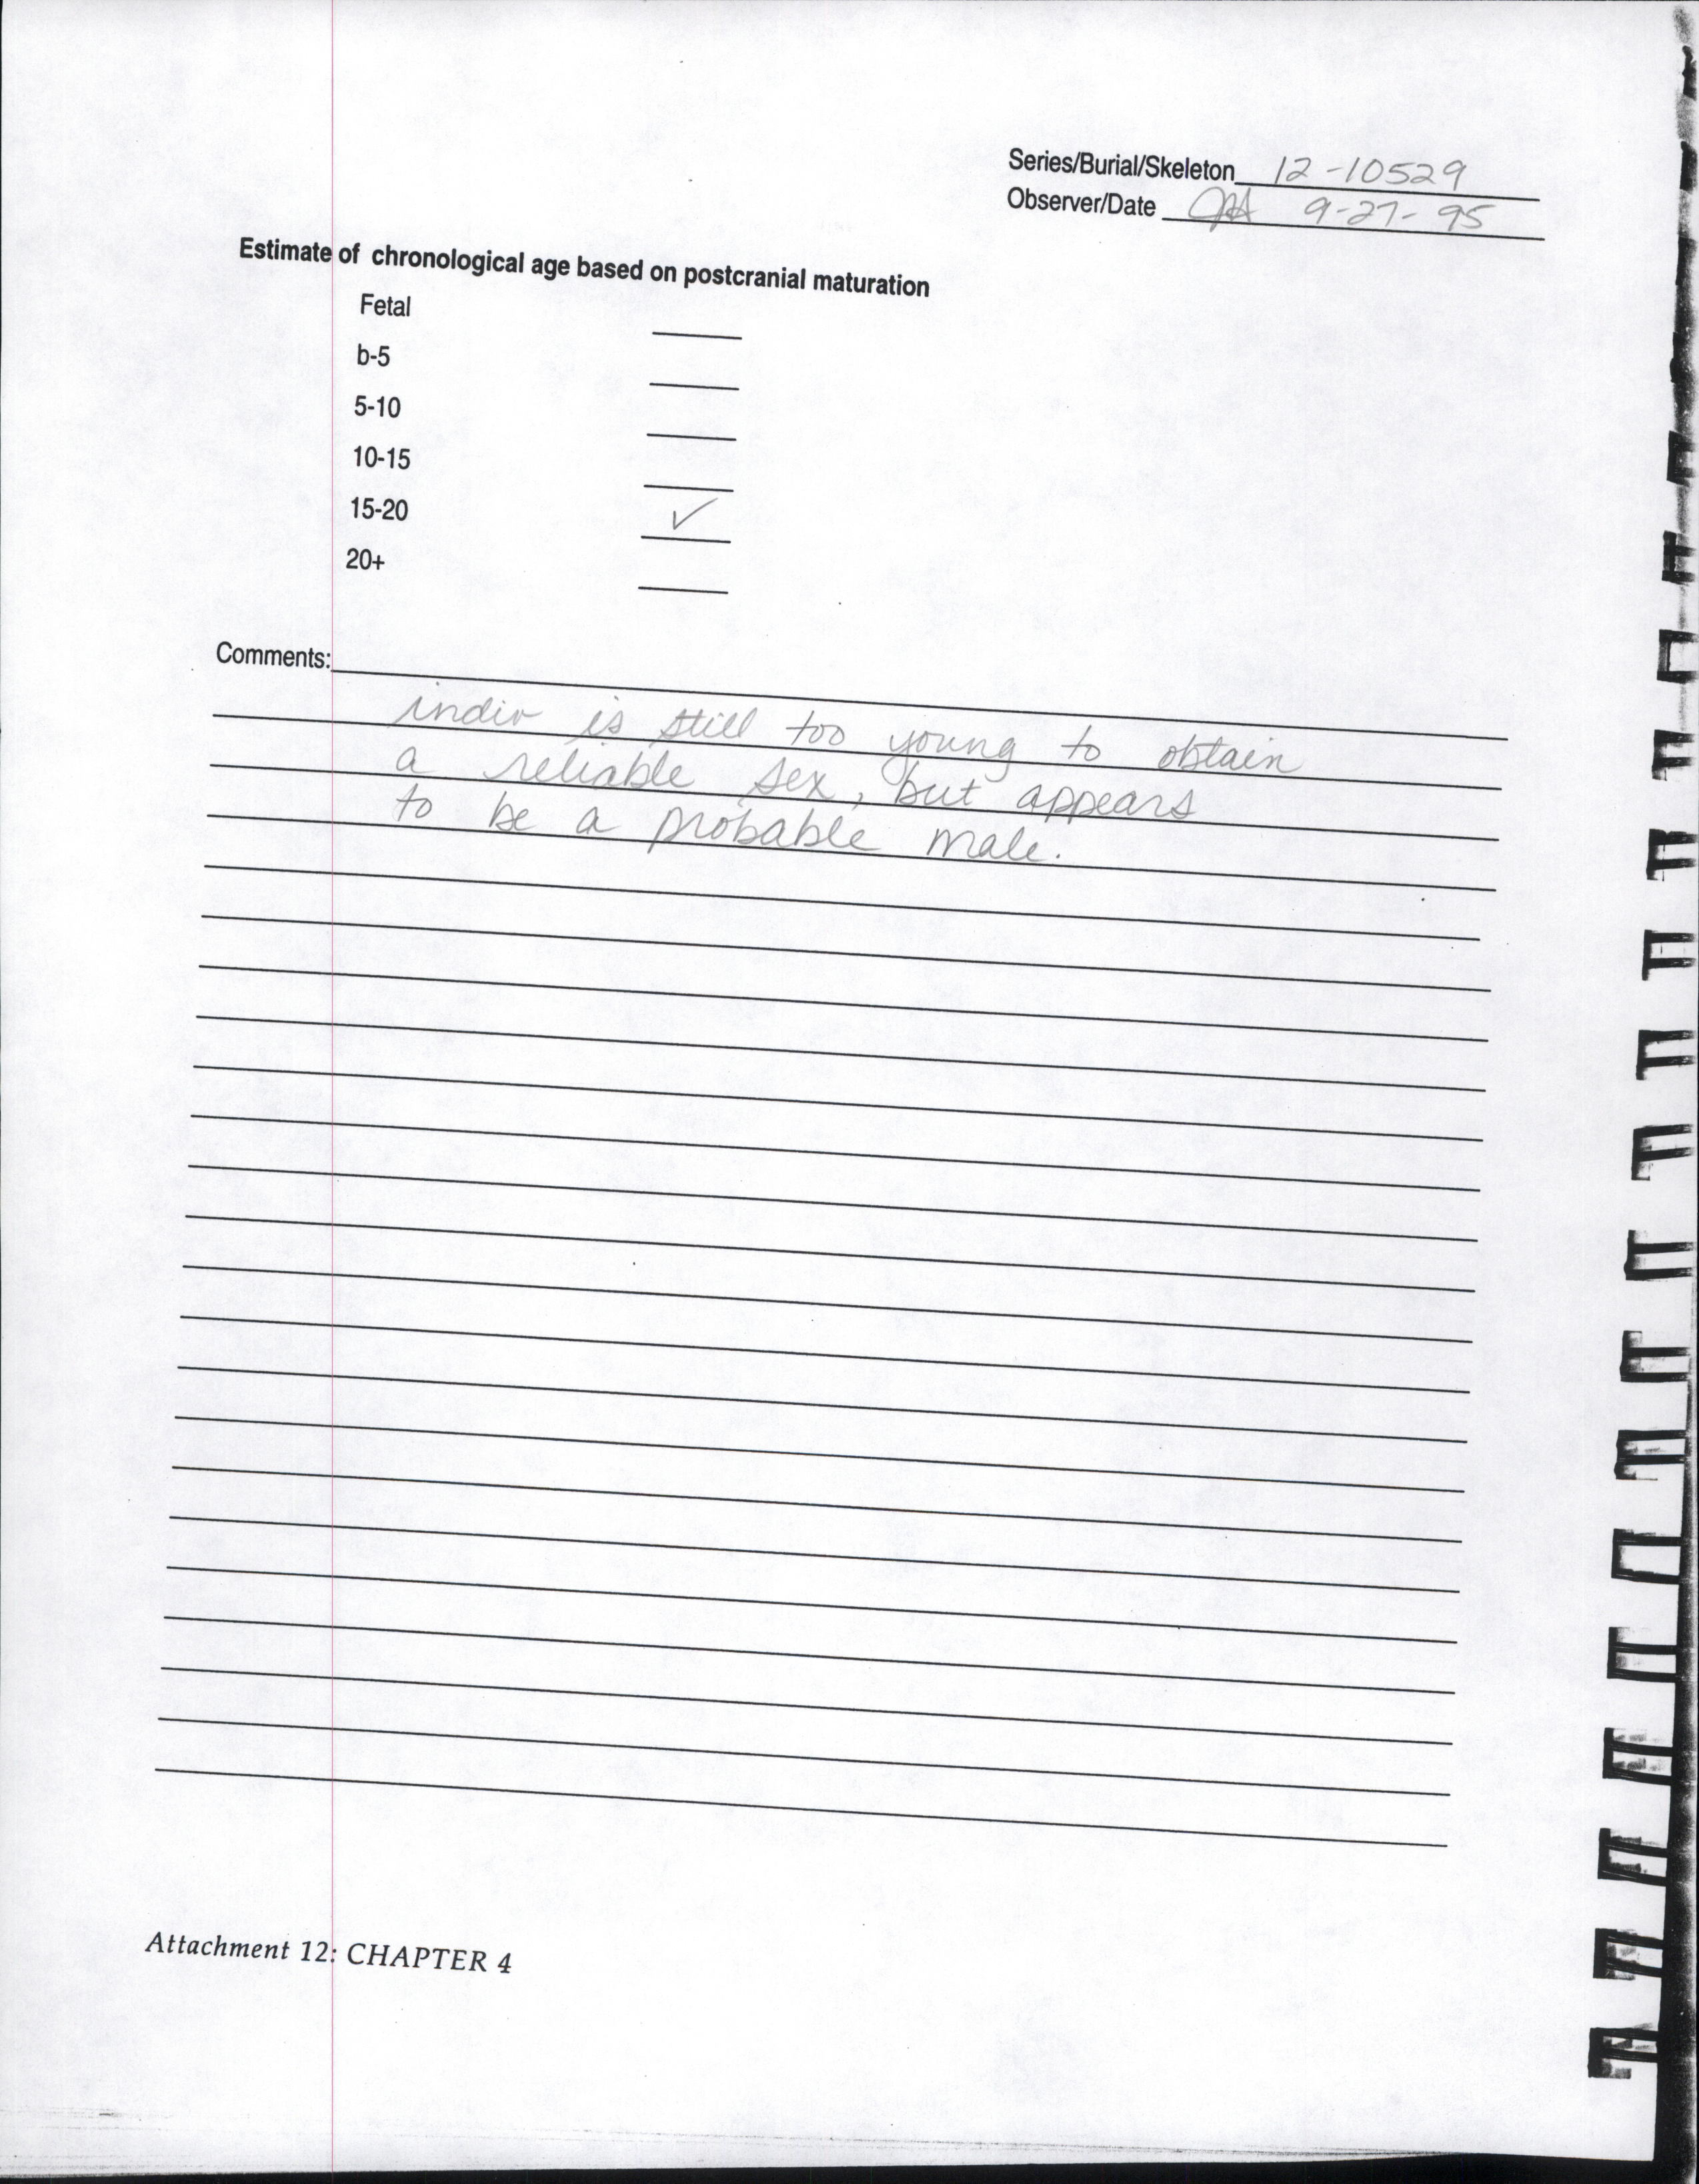 Series/Burial/Skeleton 12-10529
Observer/Date 9-27-95
Estimate of chronological age based on postcranial maturation
Fetal
b-5
5-10
10-15
15-20 ✓
20+
Comments:
indiv is still too young to obtain
a reliable sex, but appears
to be a probable male.
Attachment 12: CHAPTER 4